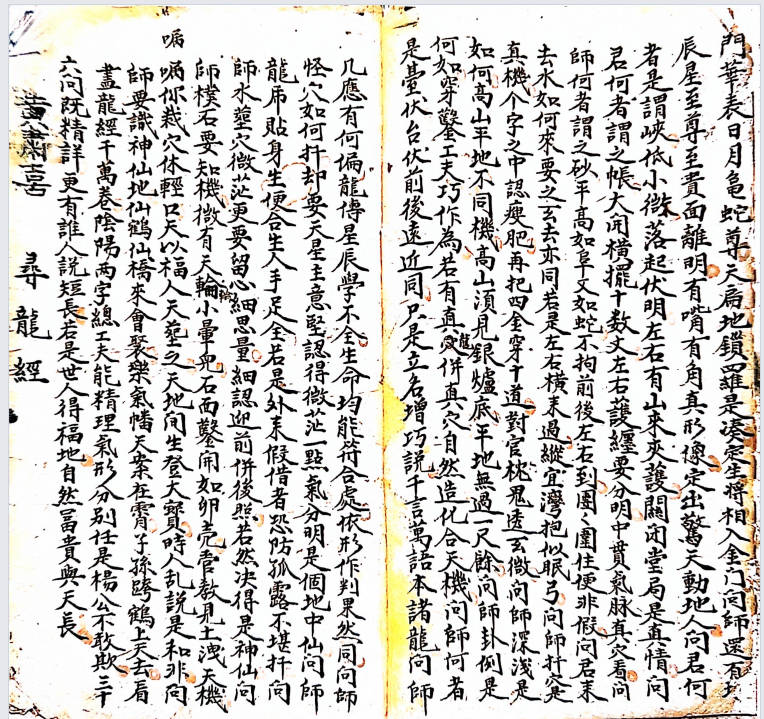 門華表日月龜蛇尊天扃地鎖四維是湊定生將相入金门向師還有
辰星至尊至貴面離明有嘴有角真形像定出驚天動地人问君何
者是謂峽低小微落起伏明左右有山來夾護關闭堂局是真情问
君何者謂之帳大開橫擺十数丈左右護纏要分明中貫氣脉真穴看问
師何者謂之砂平高如阜又如蛇不拘前後左右到團〻圍住便非假问君来
去水如何來要之玄去亦同若是左右橫来過縱宜灣抱似眠弓问師扦穴是
真機个字之中認瘦肥再把四金穿十道對官枕鬼透玄微问師深淺是
如何高山平地不同機高山須見銀爐底平地無過一尺餘问師卦例是
何如穿鑿工夫巧作為若有真龍併真穴自然造化合天機问師何者
是臺伏台伏前後遠近同只是立名增巧説千言萬語本諸龍向師
凡應有何偏龍傳星辰學不全生命均能符合處依形作判果然同向師
怪穴如何扦却要天星主意堅認得微茫一點氣分明是個地中仙向師
龍虎貼身生便合生人手足全若是外来假借者恐防孤露不堪扦向
師水壟穴微茫更要留心細思量細認迎前併後照若然决得是神仙向
師樸石要知機微有天輪小暈児石面鑿開如卵壳管教見土洩天機
嘱
嘱你裁穴休輕口天以福人天塟之天地间生登天寶時人乱説是和非向
師要識神仙地仙鶴仙橋來會聚樂氣幡天案在霄子孫跨鶴上天去看
盡龍經千萬卷陰陽两字總工夫能精理氣形分别任是楊公不敢欺三十
六问既精詳更有誰人説短長若是世人得福地自然冨貴與天長
黃肅喜　尋龍經